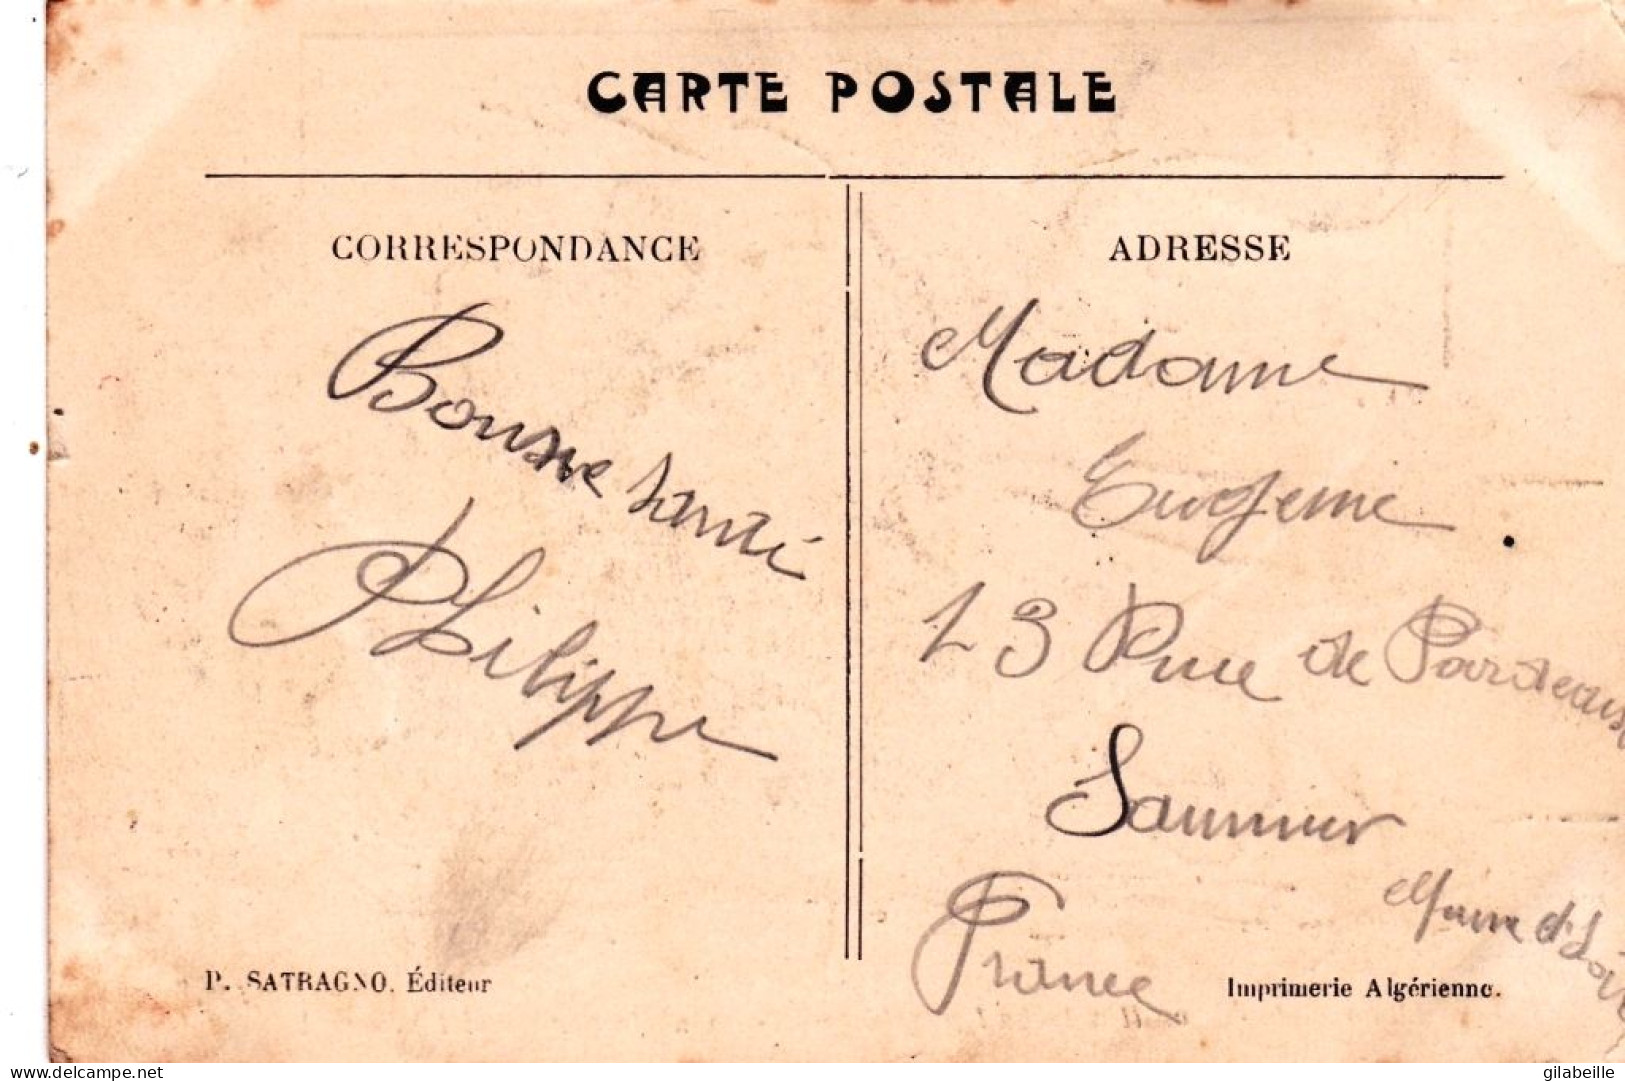 CARTE POSTALE
CORRESPONDANCE
Bonne santé
Philippe
P. SATRAGNO, Éditeur
ADRESSE
Madame
Eugenie
13 Rue de
Saumur
Maine et Loire
France
Imprimerie Algérienne.
delcampe.net
gilabeille